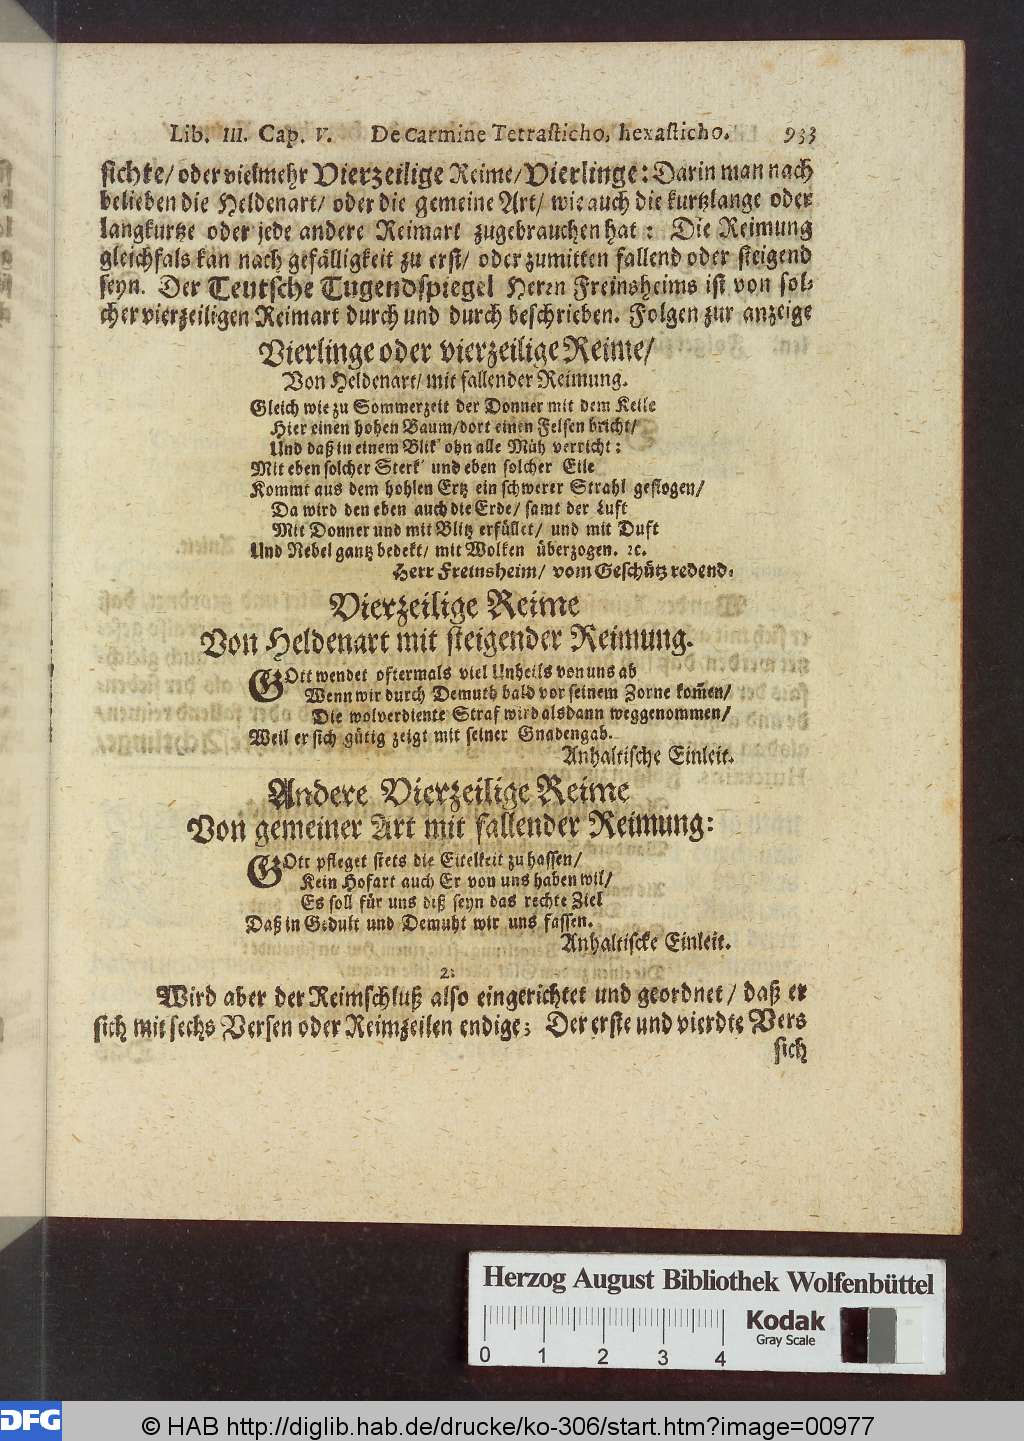 Lib. III. Cap. V. De Carmine Tetrasticho, hexasticho. 933
sichte/ oder vielmehr Vierzeilige Reime/ Vierlinge: Darin man nach
belieben die Heldenart/ oder die gemeine Art/ wie auch die kurtzlange oder
langkurtze oder jede andere Reimart zugebrauchen hat: Die Reimung
gleichfals kan nach gefälligkeit zu erst/ oder zumitten fallend oder steigend
seyn. Der Teutsche Tugendspiegel Herrn Freinsheims ist von sol-
cher vierzeiligen Reimart durch und durch beschrieben. Folgen zur anzeige
Vierlinge oder vierzeilige Reime/
Von Heldenart/ mit fallender Reimung.
Gleich wie zu Sommerzeit der Donner mit dem Keile
Hier einen hohen Baum/ dort einen Felsen bricht/
Und daß in einem Blik' ohn alle Müh verricht:
Mit eben solcher Sterk' und eben solcher Eile
Kommt aus dem hohlen Ertz ein schwerer Strahl geflogen/
Da wird den eben auch die Erde/ samt der Luft
Mit Donner und mit Blitz erfüllet/ und mit Duft
Und Nebel gantz bedekt/ mit Wolken überzogen. ꝛc.
Herr Freinsheim/ vom Geschütz redend.
Vierzeilige Reime
Von Heldenart mit steigender Reimung.
GOtt wendet oftermals viel Unheils von uns ab
Wenn wir durch Demuth bald vor seinem Zorne kom̃en/
Die wolverdiente Straf wird alsdann weggenommen/
Weil er sich gütig zeigt mit seiner Gnadengab.
Anhaltische Einleit.
Andere Vierzeilige Reime
Von gemeiner Art mit fallender Reimung:
GOtt pfleget stets die Eitelkeit zu hassen/
Kein Hofart auch Er von uns haben wil/
Es soll für uns diß seyn das rechte Ziel
Daß in Gedult und Demuht wir uns fassen.
Anhaltiscke Einleit.
2:
Wird aber der Reimschluß also eingerichtet und geordnet/ daß er
sich mit sechs Versen oder Reimzeilen endige; Der erste und vierdte Vers
sich
Herzog August Bibliothek Wolfenbüttel
Kodak
Gray Scale
0 1 2 3 4
DFG © HAB http://diglib.hab.de/drucke/ko-306/start.htm?image=00977